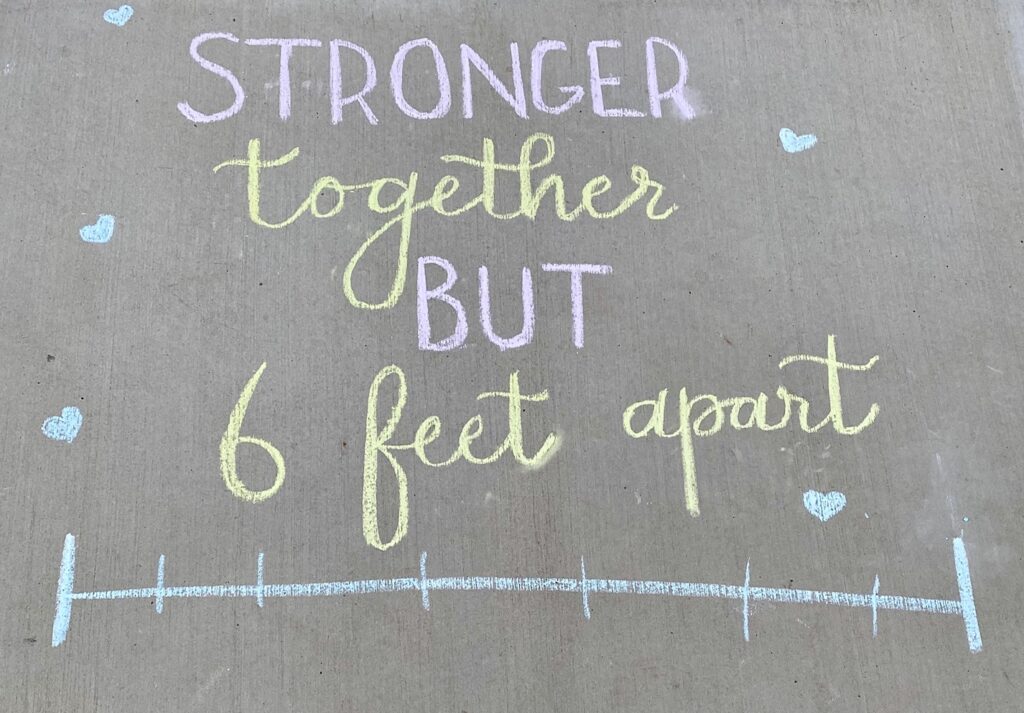 STRONGER
together
BUT
6 feet apart